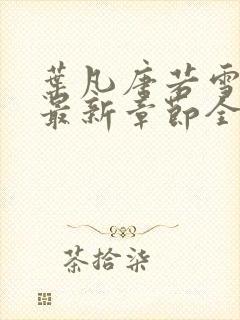 葉凡唐若雪
最新章節全
茶拾柒